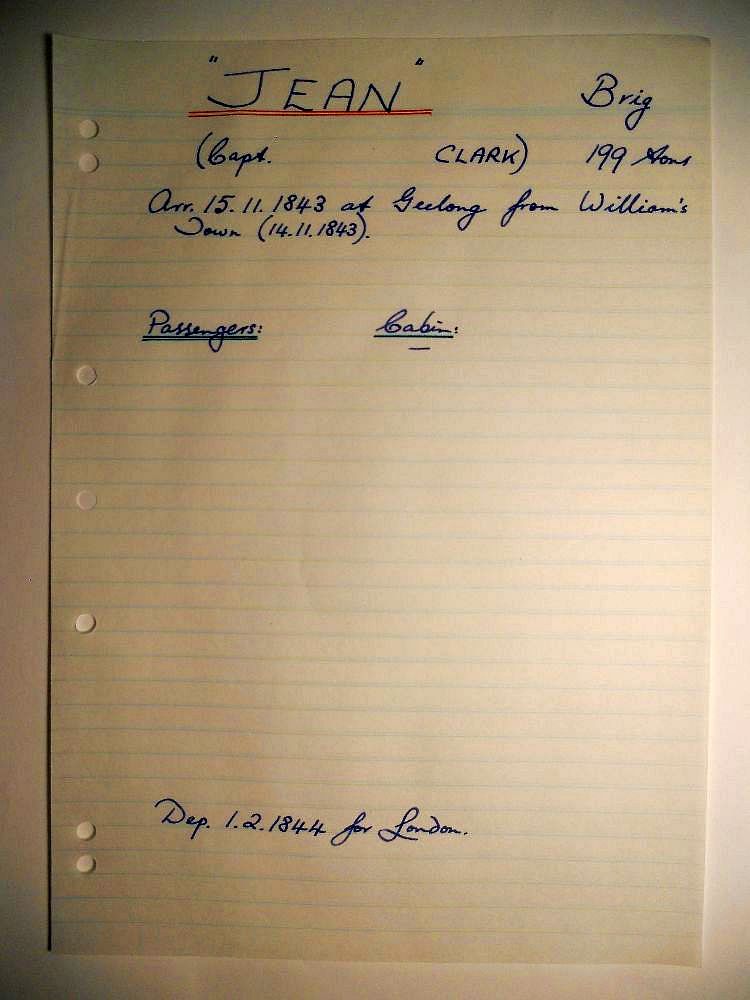 "JEAN" Brig
(Capt. CLARK) 199 tons
Arr. 15.11.1843 at Geelong from William's
Town (14.11.1843).
Passengers: Cabin:
—
Dep. 1.2.1844 for London.